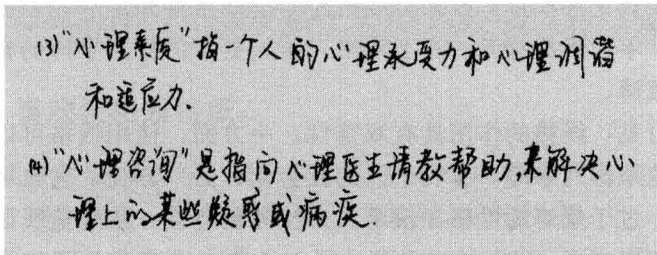 (3)“心理素质”指一个人的心理承受力和心理调谐
和适应力.
(4)“心理咨询”是指向心理医生请教帮助,来解决心
理上的某些疑惑或病疾.